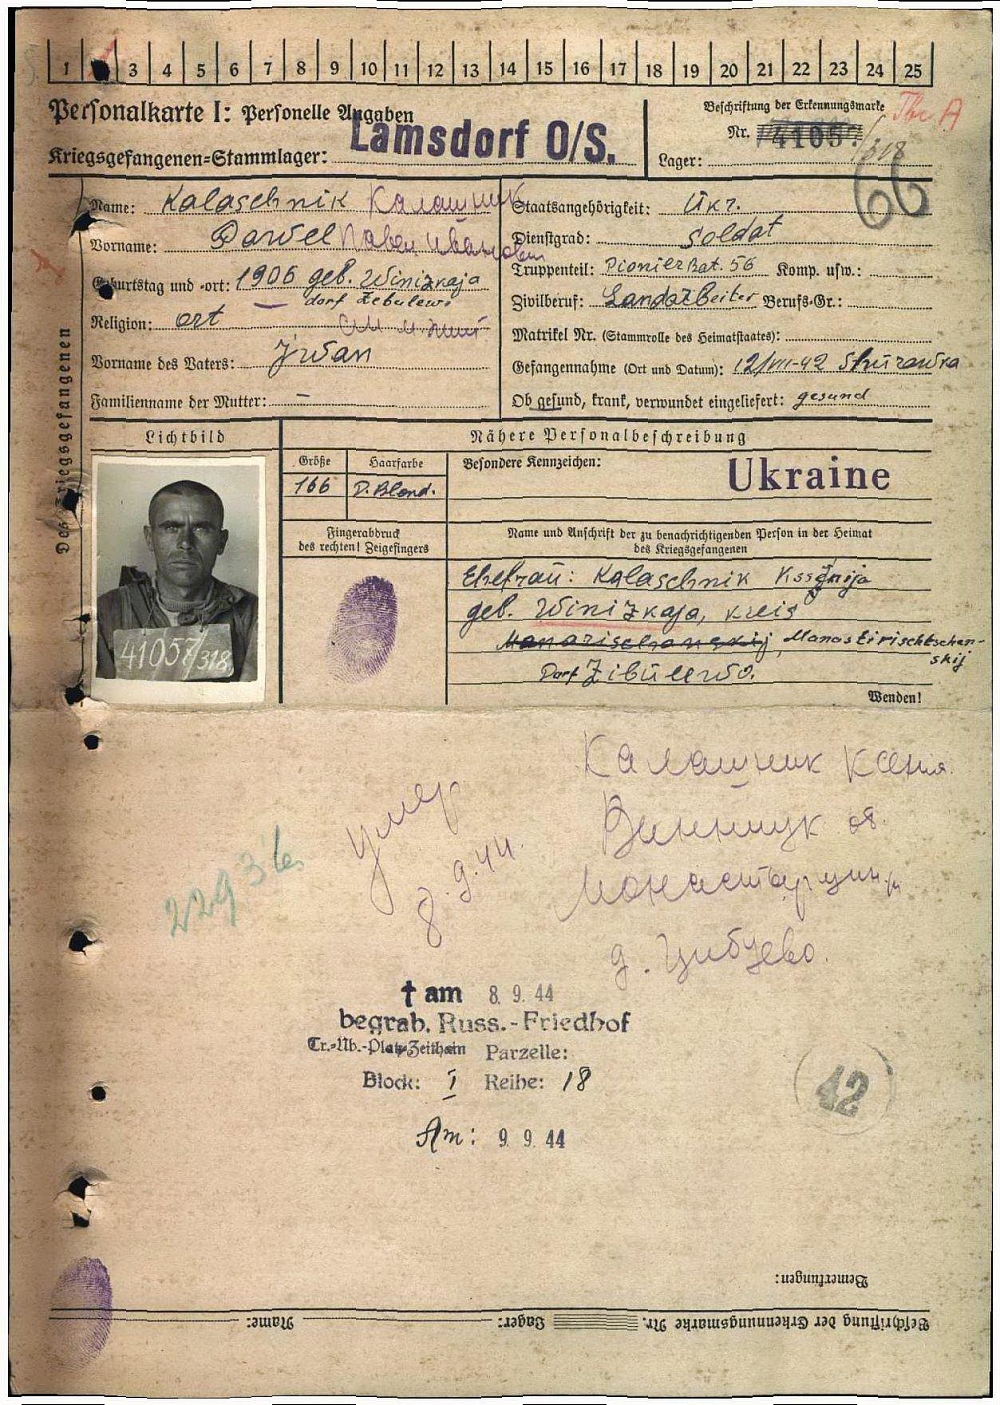 1 3 4 5 6 7 8 9 10 11 12 13 14 15 16 17 18 19 20 21 22 23 24 25
Personalkarte I: Personelle Angaben
Beschriftung der Erkennungsmarke
Nr. 41057/318
Kriegsgefangenen-Stammlager: Lamsdorf O/S.
Lager:
66
Des Kriegsgefangenen
Name: Kalaschnik Калашник
Vorname: Pawel Павел Иванович
Geburtstag und -ort: 1906 geb. Winizkaja
dorf Zebulewo
Religion: ort
Vorname des Vaters: Iwan
Familienname der Mutter: –
Staatsangehörigkeit: Ukr.
Dienstgrad: Soldat
Truppenteil: Pionier Bat. 56 Komp. usw.:
Zivilberuf: Landarbeiter Berufs-Gr.:
Matrikel Nr. (Stammrolle des Heimatstaates):
Gefangennahme (Ort und Datum): 12/VII-42
Ob gesund, krank, verwundet eingeliefert: gesund
Lichtbild
Nähere Personalbeschreibung
Größe
166
Haarfarbe
D. Blond.
Besondere Kennzeichen:
Ukraine
Fingerabdruck
des rechten! Zeigefingers
Name und Anschrift der zu benachrichtigenden Person in der Heimat
des Kriegsgefangenen
Ehefrau: Kalaschnik Kssenija
geb. Winizkaja, Kreis
Manastirischtschen-
skij
Dorf Zibulewo.
41057/318
Wenden!
Калашник Ксения.
Винницк об.
Монастырищин. р
д. Цибулево.
умер
8.9.44.
† am 8. 9. 44
begrab. Russ.-Friedhof
Tr.-Üb.-Platz Zeithain Parzelle:
Block: I Reihe: 18
Am: 9. 9. 44
42
Bemerkungen:
Beschriftung der Erkennungsmarke Nr. Lager: Name: